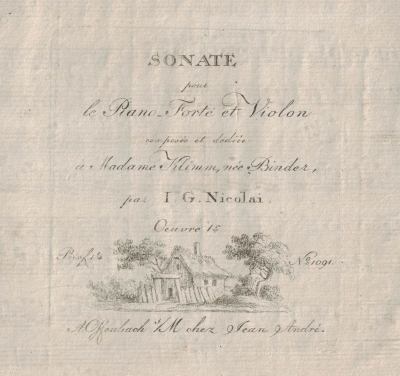 SONATE
pour
le Piano-Forté et Violon
composée et dediée
a Madame Klimm, née Binder,
par I G. Nicolai.
Oeuvre 15
No 1091.
A Offenbach s/M chez Jean André.